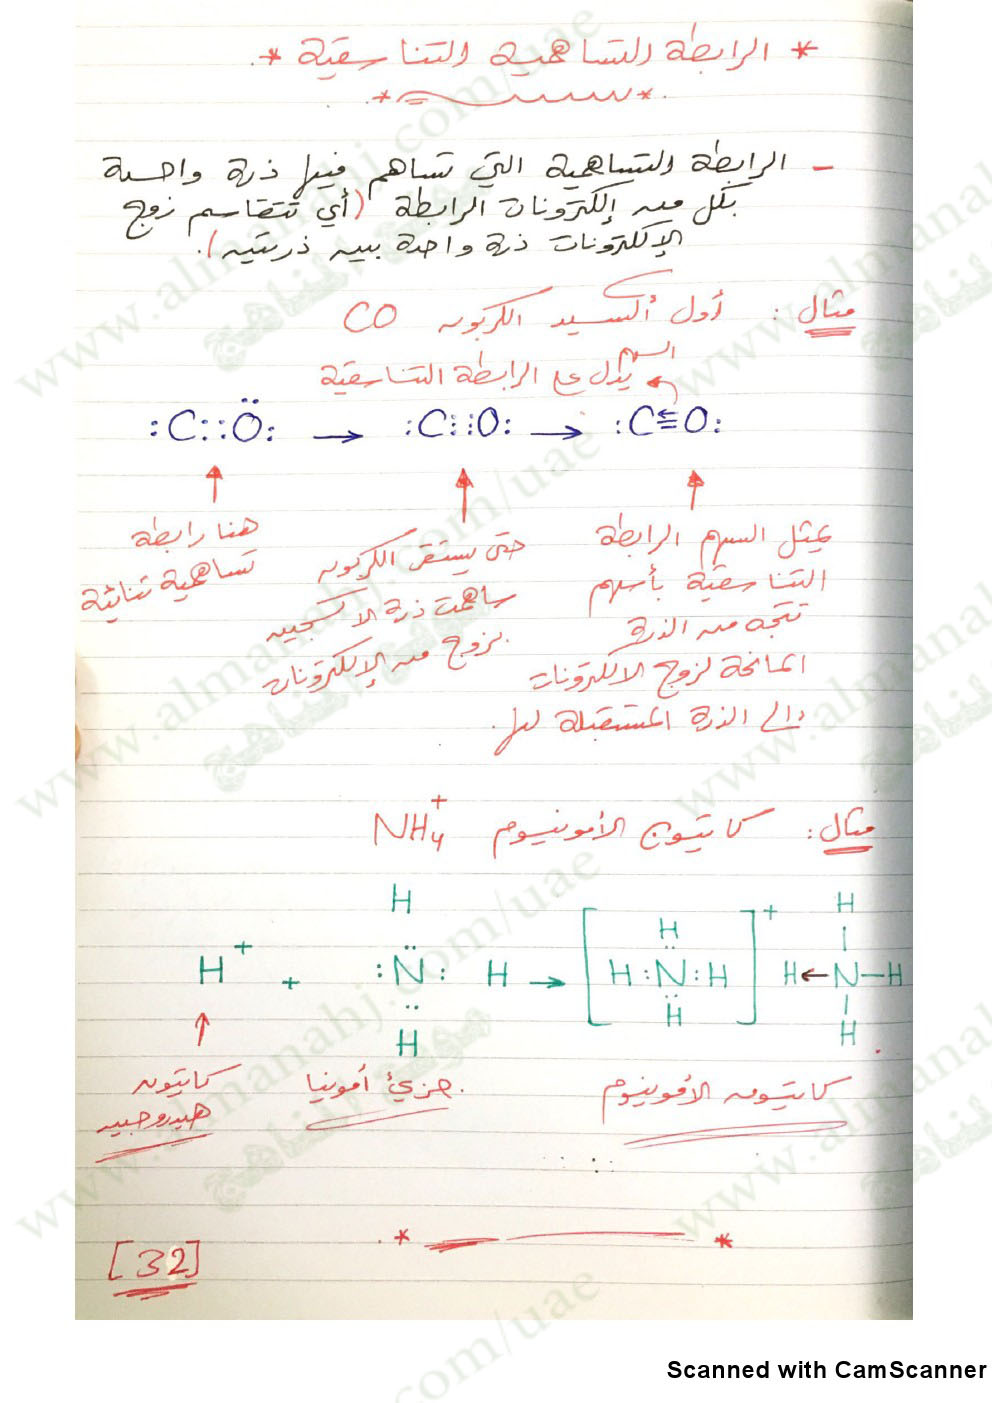 * الرابطة التساهمية التناسقية *
- الرابطة التساهمية التي تساهم فيها ذرة واحدة
بكل من إلكترونات الرابطة (أي تتقاسم زوج
الإلكترونات ذرة واحدة بين ذرتين).
مثال : أول أكسيد الكربون CO
السهم
يدل على الرابطة التناسقية
:C::Ö: → :C⋮⋮O: → :C≡O:
هنا رابطة
تساهمية ثنائية
حتى يستقر الكربون
ساهمت ذرة الاكسجين
بزوج من الإلكترونات
يمثل السهم الرابطة
التناسقية بأسهم
تتجه من الذرة
المانحة لزوج الالكترونات
إلى الذرة المستقبلة لها.
مثال : كاتيون الأمونيوم NH4+
H H H
H+ + :N: H → [H:N:H]+ H←N–H
H H H
كاتيون
هيدروجين
جزيء أمونيا
كاتيون الأمونيوم
[32]
www.almanahj.com/uae
موقع المناهج
Scanned with CamScanner